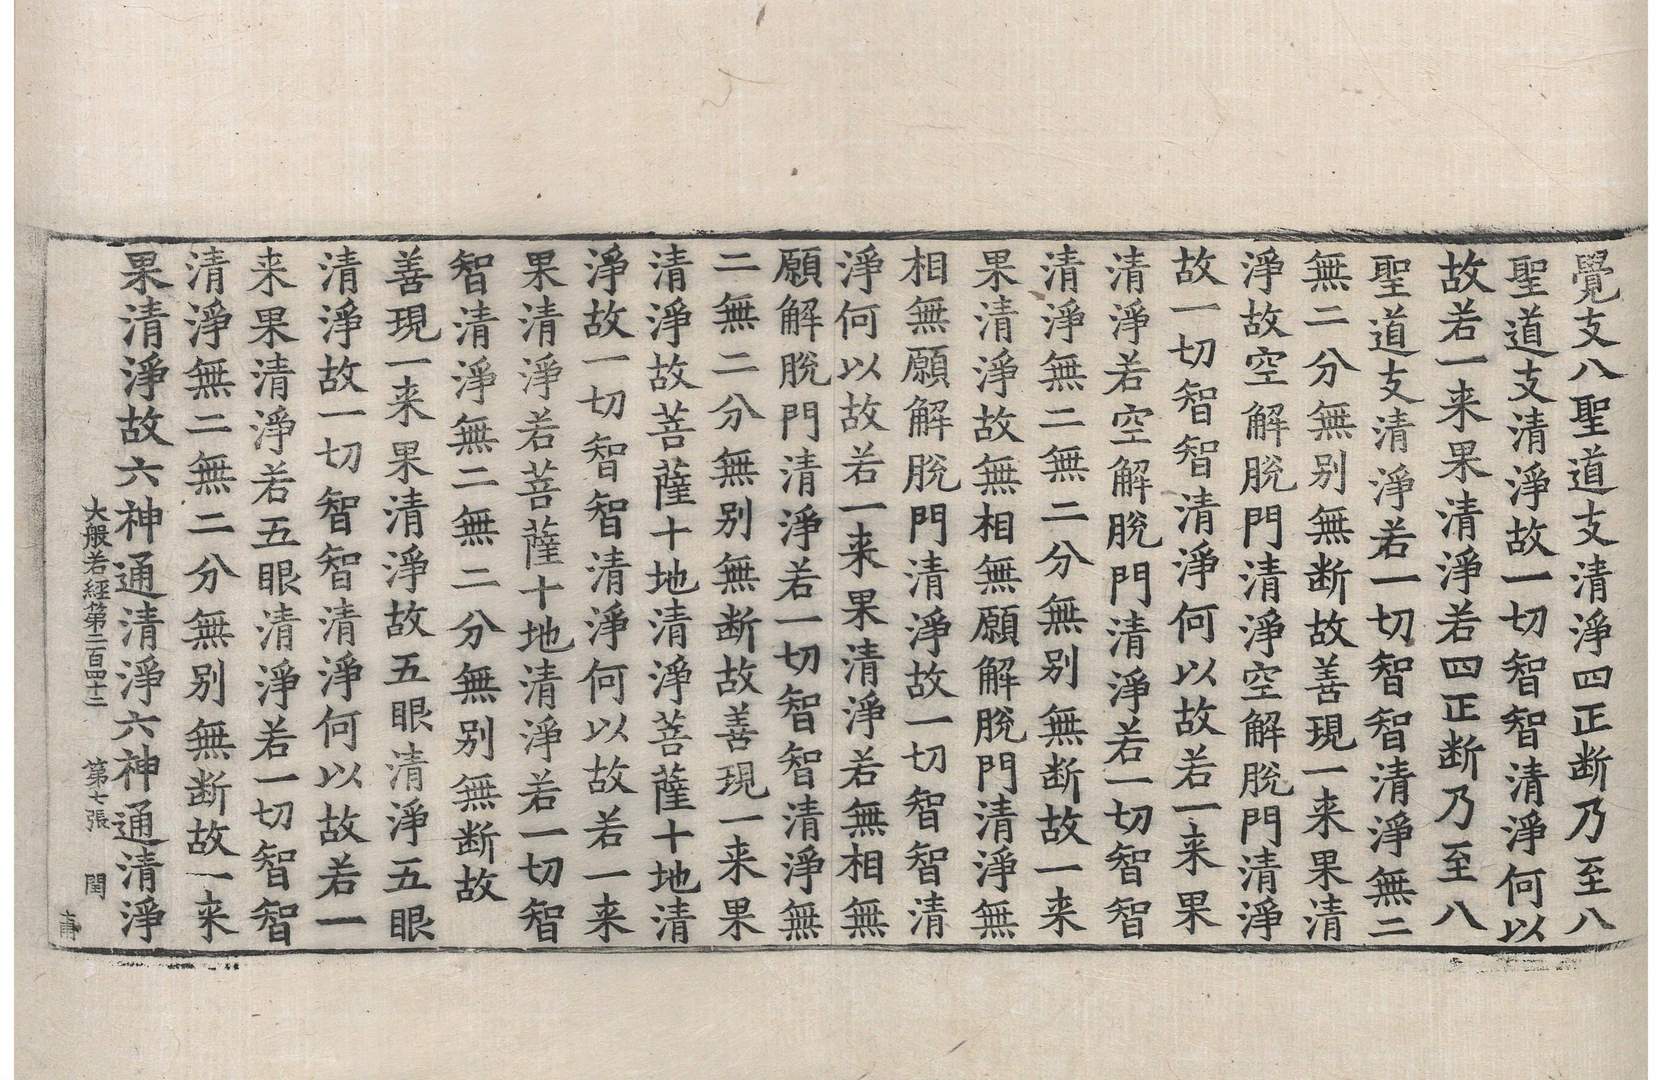 覺支八聖道支清淨四正断乃至八
聖道支清淨故一切智智清淨何以
故若一来果清淨若四正断乃至八
聖道支清淨若一切智智清淨無二
無二分無别無断故善現一来果清
淨故空解脫門清淨空解脫門清淨
故一切智智清淨何以故若一来果
清淨若空解脫門清淨若一切智智
清淨無二無二分無别無断故一来
果清淨故無相無願解脫門清淨無
相無願解脫門清淨故一切智智清
淨何以故若一来果清淨若無相無
願解脫門清淨若一切智智清淨無
二無二分無别無断故善現一来果
清淨故菩薩十地清淨菩薩十地清
淨故一切智智清淨何以故若一来
果清淨若菩薩十地清淨若一切智
智清淨無二無二分無别無断故
善現一来果清淨故五眼清淨五眼
清淨故一切智智清淨何以故若一
来果清淨若五眼清淨若一切智智
清淨無二無二分無别無断故一来
果清淨故六神通清淨六神通清淨
大般若經第二百四十二 第七張 閏